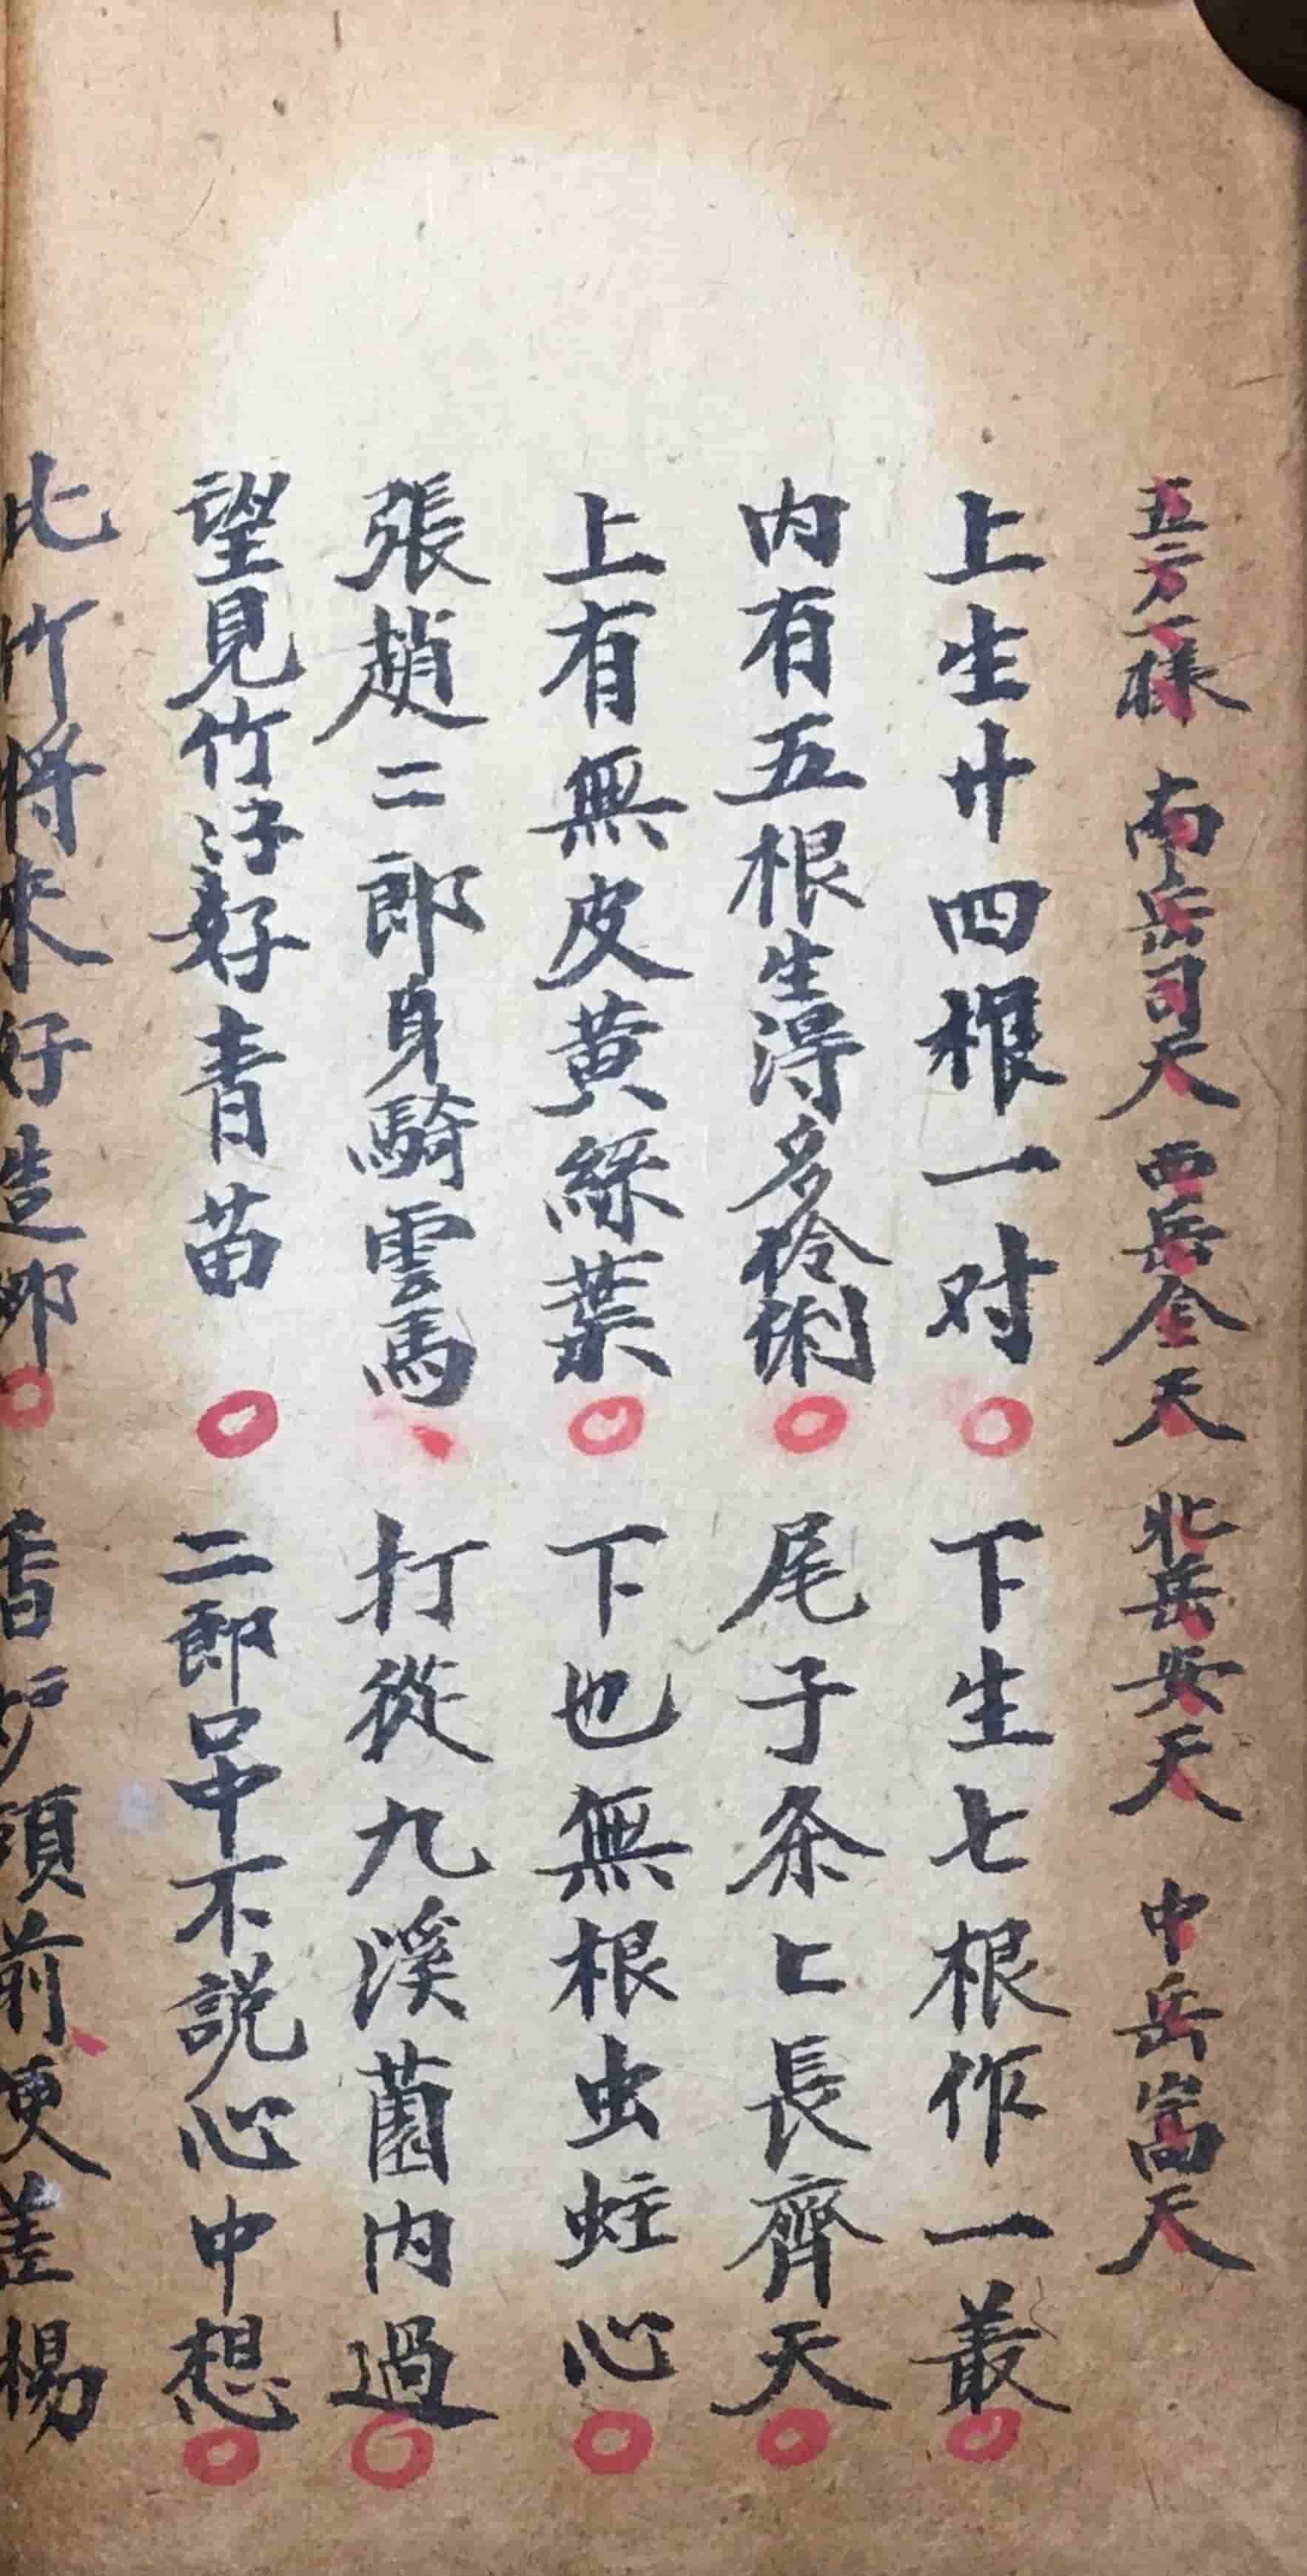 五方一樣 南岳司天 西岳金天 北岳安天 中岳嵩天
上生廾四根一对 下生七根作一叢
内有五根生淂多伶俐 尾子条匕長齊天
上有無皮黄綠葉 下也無根虫蛀心
張趙二郎身騎雲馬 打從九溪菌内過
望見竹仔好青苗 二郎口中不説心中想
比竹将来好造 香炉頭前更差楊